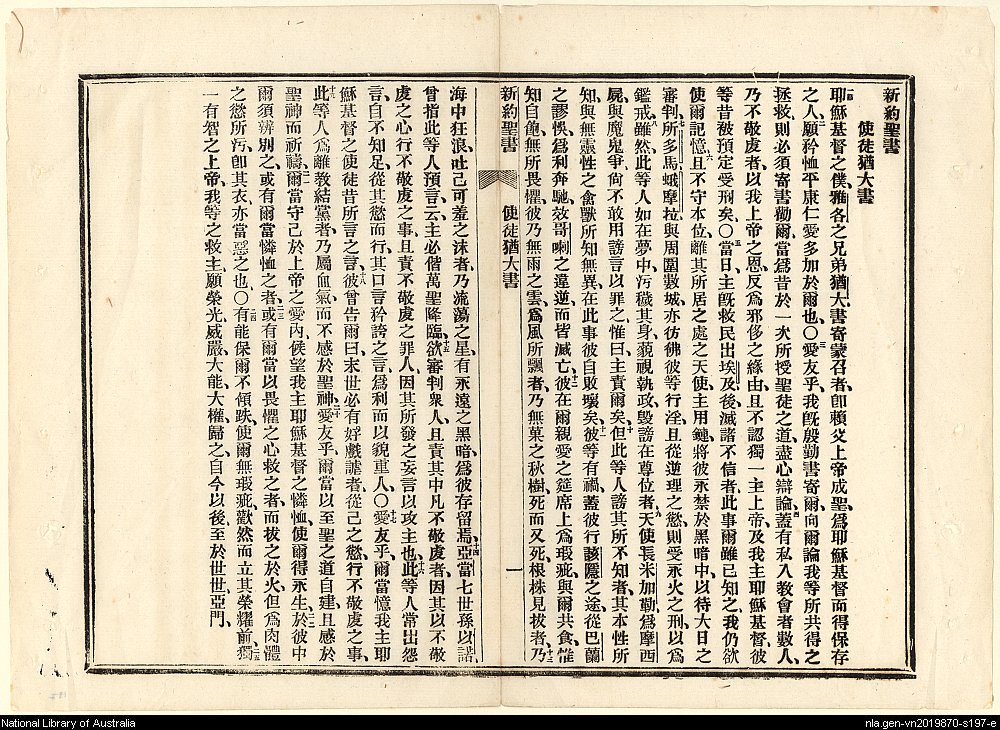 新約聖書
使徒猶大書
耶穌基督之僕、雅各之兄弟猶大、書寄蒙召者、卽賴父上帝成聖、爲耶穌基督而得保存
之人、願矜恤平康仁愛、多加於爾也、○愛友乎、我旣殷勤書寄爾、向爾論我等所共得之
拯救、則必須寄書勸爾、當爲昔於一次所授聖徒之道、盡心辯論、蓋有私入教會者數人、
乃不敬虔者、以我上帝之恩、反爲邪侈之緣由、且不認獨一主上帝、及我主耶穌基督、彼
等昔被預定受刑矣、○當日主旣救民出埃及、後滅諸不信者、此事爾雖已知之、我仍欲
使爾記憶、且不守本位、離其所居之處之天使、主用鏈將彼永禁於黑暗中、以待大日之
審判、所多馬蛾摩拉、與周圍數城、亦彷彿彼等行淫、且從逆理之慾、則受永火之刑、以爲
鑑戒、雖然、此等人如在夢中、污穢其身、藐視執政、毀謗在尊位者、天使長米加勒、爲摩西
屍、與魔鬼爭、尙不敢用謗言以罪之、惟曰、主責爾矣、但此等人謗其所不知者、其本性所
知、與無靈性之禽獸所知無異、在此事彼自敗壞矣、彼等有禍、蓋彼行該隱之途、從巴蘭
之謬悞、爲利奔馳、效哥喇之違逆、而皆滅亡、彼在爾親愛之筵席上爲瑕疵、與爾共食、惟
知自飽、無所畏懼、彼乃無雨之雲、爲風所飄者、乃無菓之秋樹、死而又死、根株見拔者、乃
新約聖書 使徒猶大書 一
海中狂浪、吐己可羞之沫者、乃流蕩之星、有永遠之黑暗爲彼存留焉、亞當七世孫以諾、
曾指此等人預言云、主必偕萬聖降臨、欲審判衆人、且責其中凡不敬虔者、因其以不敬
虔之心、行不敬虔之事、且責不敬虔之罪人、因其所發之妄言以攻主也、此等人常出怨
言、自不知足、從其慾而行、其口言矜誇之言、爲利而以貌重人、○愛友乎、爾當憶我主耶
穌基督之使徒、昔所言之言、彼曾告爾曰、末世必有好戲謔者、從己之慾、行不敬虔之事、
此等人爲離教結黨者、乃屬血氣、而不感於聖神、愛友乎、爾當以至聖之道自建、且感於
聖神而祈禱、爾當守己於上帝之愛內、候望我主耶穌基督之憐恤、使爾得永生、於彼中
爾須辨別之、或有爾當憐恤之者、或有爾當以畏懼之心救之者、而拔之於火、但爲肉體
之慾所污、卽其衣亦當惡之也、○有能保爾不傾跌、使爾無瑕疵、歡然而立其榮耀前、獨
一有智之上帝、我等之救主、願榮光威嚴大能大權、歸之、自今以後、至於世世、亞門、
National Library of Australia
nla.gen-vn2019870-s197-e